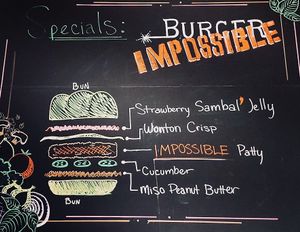 Specials: BURGER
IMPOSSIBLE
BUN
Strawberry Sambal' Jelly
Wonton Crisp
IMPOSSIBLE Patty
Cucumber
Miso Peanut Butter
BUN